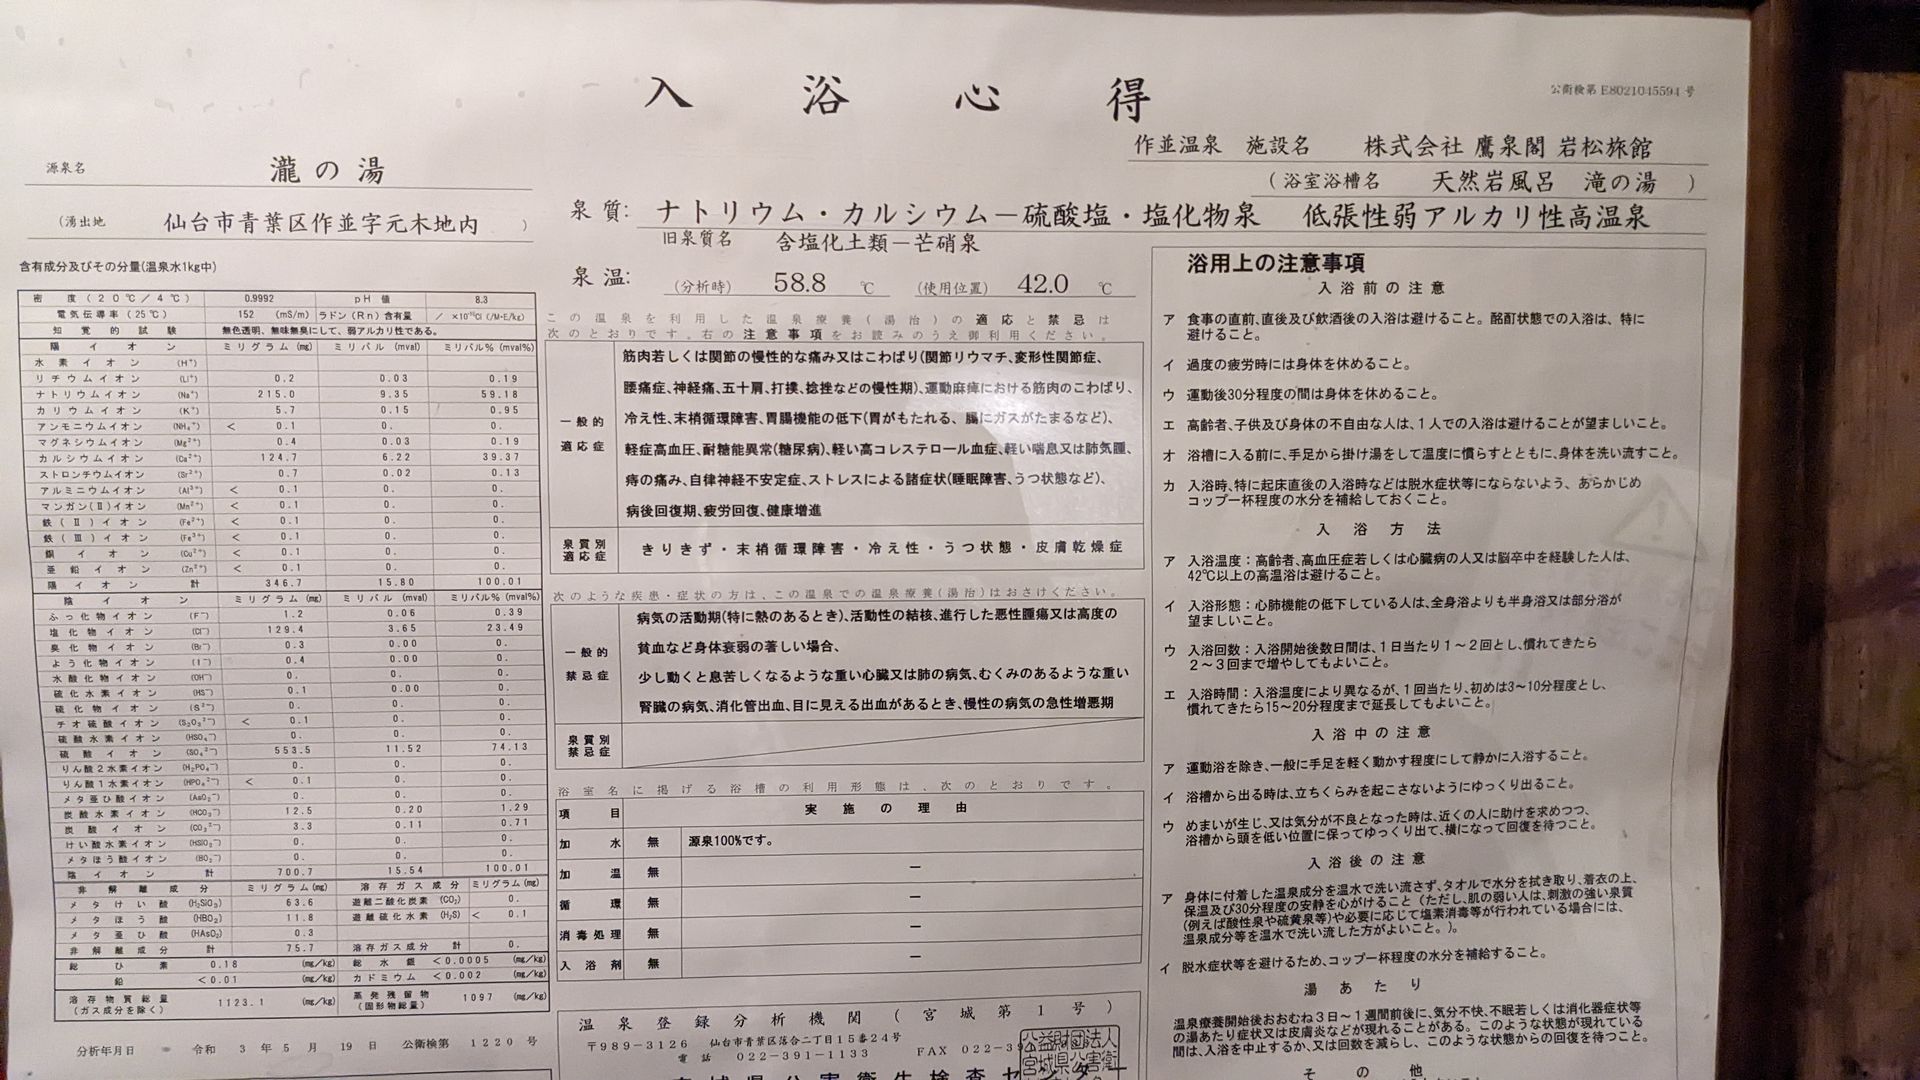 入浴心得
公衛検第 E8021045594 号
作並温泉 施設名 株式会社 鷹泉閣 岩松旅館
(浴室浴槽名 天然岩風呂 滝の湯 )
源泉名 瀧の湯
(湧出地 仙台市青葉区作並字元木地内 )
泉質: ナトリウム・カルシウム－硫酸塩・塩化物泉 低張性弱アルカリ性高温泉
旧泉質名 含塩化土類－芒硝泉
泉温: (分析時) 58.8 ℃ (使用位置) 42.0 ℃
含有成分及びその分量(温泉水1kg中)
密度(20℃/4℃) 0.9992 pH値 8.3
電気伝導率(25℃) 152 (mS/m) ラドン(Rn)含有量 / ×10⁻¹⁰Ci (/M・E/kg)
知覚的試験 無色透明、無味無臭にして、弱アルカリ性である。
陽イオン ミリグラム(mg) ミリバル(mval) ミリバル%(mval%)
水素イオン (H⁺)
リチウムイオン (Li⁺) 0.2 0.03 0.19
ナトリウムイオン (Na⁺) 215.0 9.35 59.18
カリウムイオン (K⁺) 5.7 0.15 0.95
アンモニウムイオン (NH₄⁺) < 0.1 0. 0.
マグネシウムイオン (Mg²⁺) 0.4 0.03 0.19
カルシウムイオン (Ca²⁺) 124.7 6.22 39.37
ストロンチウムイオン (Sr²⁺) 0.7 0.02 0.13
アルミニウムイオン (Al³⁺) < 0.1 0. 0.
マンガン(Ⅱ)イオン (Mn²⁺) < 0.1 0. 0.
鉄(Ⅱ)イオン (Fe²⁺) < 0.1 0. 0.
鉄(Ⅲ)イオン (Fe³⁺) < 0.1 0. 0.
銅イオン (Cu²⁺) < 0.1 0. 0.
亜鉛イオン (Zn²⁺) < 0.1 0. 0.
陽イオン計 346.7 15.80 100.01
陰イオン ミリグラム(mg) ミリバル(mval) ミリバル%(mval%)
ふっ化物イオン (F⁻) 1.2 0.06 0.39
塩化物イオン (Cl⁻) 129.4 3.65 23.49
臭化物イオン (Br⁻) 0.3 0.00 0.
よう化物イオン (I⁻) 0.4 0.00 0.
水酸化物イオン (OH⁻) 0. 0. 0.
硫化水素イオン (HS⁻) 0.1 0.00 0.
硫化物イオン (S²⁻) 0. 0. 0.
チオ硫酸イオン (S₂O₃²⁻) < 0.1 0. 0.
硫酸水素イオン (HSO₄⁻) 0. 0. 0.
硫酸イオン (SO₄²⁻) 553.5 11.52 74.13
りん酸2水素イオン (H₂PO₄⁻) 0. 0. 0.
りん酸1水素イオン (HPO₄²⁻) < 0.1 0. 0.
メタ亜ひ酸イオン (AsO₂⁻) 0. 0. 0.
炭酸水素イオン (HCO₃⁻) 12.5 0.20 1.29
炭酸イオン (CO₃²⁻) 3.3 0.11 0.71
けい酸水素イオン (HSiO₃⁻) 0. 0. 0.
メタほう酸イオン (BO₂⁻) 0. 0. 0.
陰イオン計 700.7 15.54 100.01
非解離成分 ミリグラム(mg) 溶存ガス成分 ミリグラム(mg)
メタけい酸 (H₂SiO₃) 63.6 遊離二酸化炭素 (CO₂) 0.
メタほう酸 (HBO₂) 11.8 遊離硫化水素 (H₂S) < 0.1
メタ亜ひ酸 (HAsO₂) 0.3
非解離成分計 75.7 溶存ガス成分計 0.
総ひ素 0.18 (mg/kg) 総水銀 <0.0005 (mg/kg)
鉛 <0.01 (mg/kg) カドミウム <0.002 (mg/kg)
溶存物質総量 (ガス成分を除く) 1123.1 (mg/kg) 蒸発残留物 (固形物総量) 1097 (mg/kg)
分析年月日 令和 3年5月19日 公衛検第 1220 号
この温泉を利用した温泉療養(湯治)の適応と禁忌は
次のとおりです。右の注意事項をお読みのうえ御利用ください。
一般的適応症
筋肉若しくは関節の慢性的な痛み又はこわばり(関節リウマチ、変形性関節症、
腰痛症、神経痛、五十肩、打撲、捻挫などの慢性期)、運動麻痺における筋肉のこわばり、
冷え性、末梢循環障害、胃腸機能の低下(胃がもたれる、腸にガスがたまるなど)、
軽症高血圧、耐糖能異常(糖尿病)、軽い高コレステロール血症、軽い喘息又は肺気腫、
痔の痛み、自律神経不安定症、ストレスによる諸症状(睡眠障害、うつ状態など)、
病後回復期、疲労回復、健康増進
泉質別適応症 きりきず・末梢循環障害・冷え性・うつ状態・皮膚乾燥症
次のような疾患・症状の方は、この温泉での温泉療養(湯治)はおさけください。
一般的禁忌症
病気の活動期(特に熱のあるとき)、活動性の結核、進行した悪性腫瘍又は高度の
貧血など身体衰弱の著しい場合、
少し動くと息苦しくなるような重い心臓又は肺の病気、むくみのあるような重い
腎臓の病気、消化管出血、目に見える出血があるとき、慢性の病気の急性増悪期
泉質別禁忌症
浴室名に掲げる浴槽の利用形態は、次のとおりです。
項目 実施の理由
加水 無 源泉100%です。
加温 無 －
循環 無 －
消毒処理 無 －
入浴剤 無 －
温泉登録分析機関(宮城第1号)
〒989-3126 仙台市青葉区落合二丁目15番24号
電話 022-391-1133 FAX 022-39
公益財団法人
宮城県公害衛
浴用上の注意事項
入浴前の注意
ア 食事の直前、直後及び飲酒後の入浴は避けること。酩酊状態での入浴は、特に
避けること。
イ 過度の疲労時には身体を休めること。
ウ 運動後30分程度の間は身体を休めること。
エ 高齢者、子供及び身体の不自由な人は、1人での入浴は避けることが望ましいこと。
オ 浴槽に入る前に、手足から掛け湯をして温度に慣らすとともに、身体を洗い流すこと。
カ 入浴時、特に起床直後の入浴時などは脱水症状等にならないよう、あらかじめ
コップ一杯程度の水分を補給しておくこと。
入浴方法
ア 入浴温度：高齢者、高血圧症若しくは心臓病の人又は脳卒中を経験した人は、
42℃以上の高温浴は避けること。
イ 入浴形態：心肺機能の低下している人は、全身浴よりも半身浴又は部分浴が
望ましいこと。
ウ 入浴回数：入浴開始後数日間は、1日当たり1～2回とし、慣れてきたら
2～3回まで増やしてもよいこと。
エ 入浴時間：入浴温度により異なるが、1回当たり、初めは3~10分程度とし、
慣れてきたら15~20分程度まで延長してもよいこと。
入浴中の注意
ア 運動浴を除き、一般に手足を軽く動かす程度にして静かに入浴すること。
イ 浴槽から出る時は、立ちくらみを起こさないようにゆっくり出ること。
ウ めまいが生じ、又は気分が不良となった時は、近くの人に助けを求めつつ、
浴槽から頭を低い位置に保ってゆっくり出て、横になって回復を待つこと。
入浴後の注意
ア 身体に付着した温泉成分を温水で洗い流さず、タオルで水分を拭き取り、着衣の上、
保温及び30分程度の安静を心がけること（ただし、肌の弱い人は、刺激の強い泉質
(例えば酸性泉や硫黄泉等)や必要に応じて塩素消毒等が行われている場合には、
温泉成分等を温水で洗い流した方がよいこと。)。
イ 脱水症状等を避けるため、コップ一杯程度の水分を補給すること。
湯あたり
温泉療養開始後おおむね3日～1週間前後に、気分不快、不眠若しくは消化器症状等
の湯あたり症状又は皮膚炎などが現れることがある。このような状態が現れている
間は、入浴を中止するか、又は回数を減らし、このような状態からの回復を待つこと。
その他